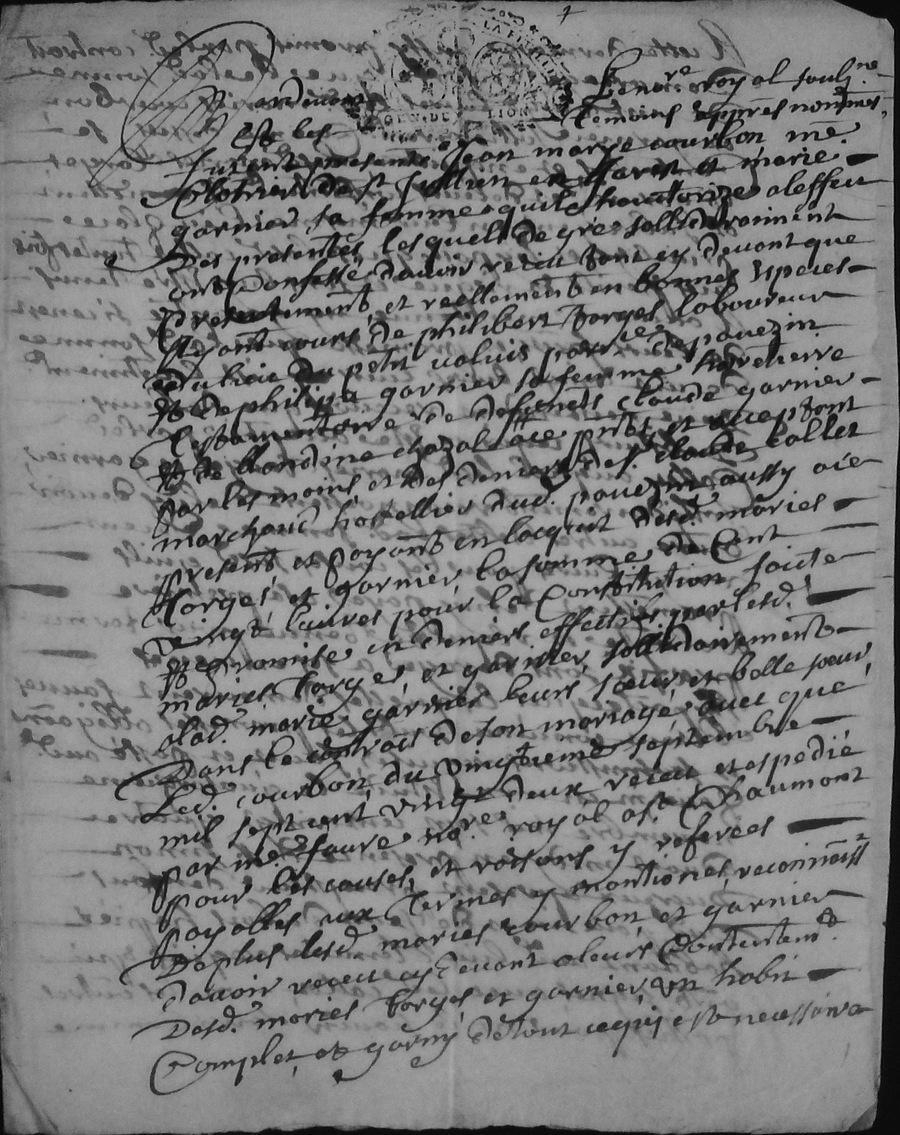 Pardevant Le nore. royal soubzne
et les temoins appres nommés
furent presents Jean marye courbon me
Clotrier de st Jullien et marie
garnier sa femme quil authorize a leffect
Des presentes, lesquels de gré sollidairement
ont Confessé davoir receu tant cy devant que
presentement, et reellement en bonnes Especes
ayant cours de philibert Forges laboureur
du lieu du petit valuis parre. de pavezin
et de philippa garnier sa femme heretierre
testamentaire de deffuncts claude garnier
et de claudine chazal
par les mains et des deniers de s. claude collet
marchand hostellier dud. pavezin aussy icy
present et payant en lacquit desd. mariés
Forges et garnier la somme de Cent
vingt livres pour la Constitution faicte
et promise en deniers effectifs par lesd.
mariés Forges, et garnier, sollidairement
a lad. marie garnier leurs soeur et belle soeur
Dans le contract de son mariage avec que
Led. courbon, du vingtieme septembre
mil sept cent vingt deux receu et expedié
par me. faure nore. royal a st. Chaumont
pour les causes et raisons y referees
payables aux termes y mentionés, reconnoisst
De plus lesd. mariés courbon et garnier
Davoir receu cy devant a leurs Contentemt.
Desd. mariés Forges et garnier, un habit
Complet, et garny de tout ce qui est necessaire